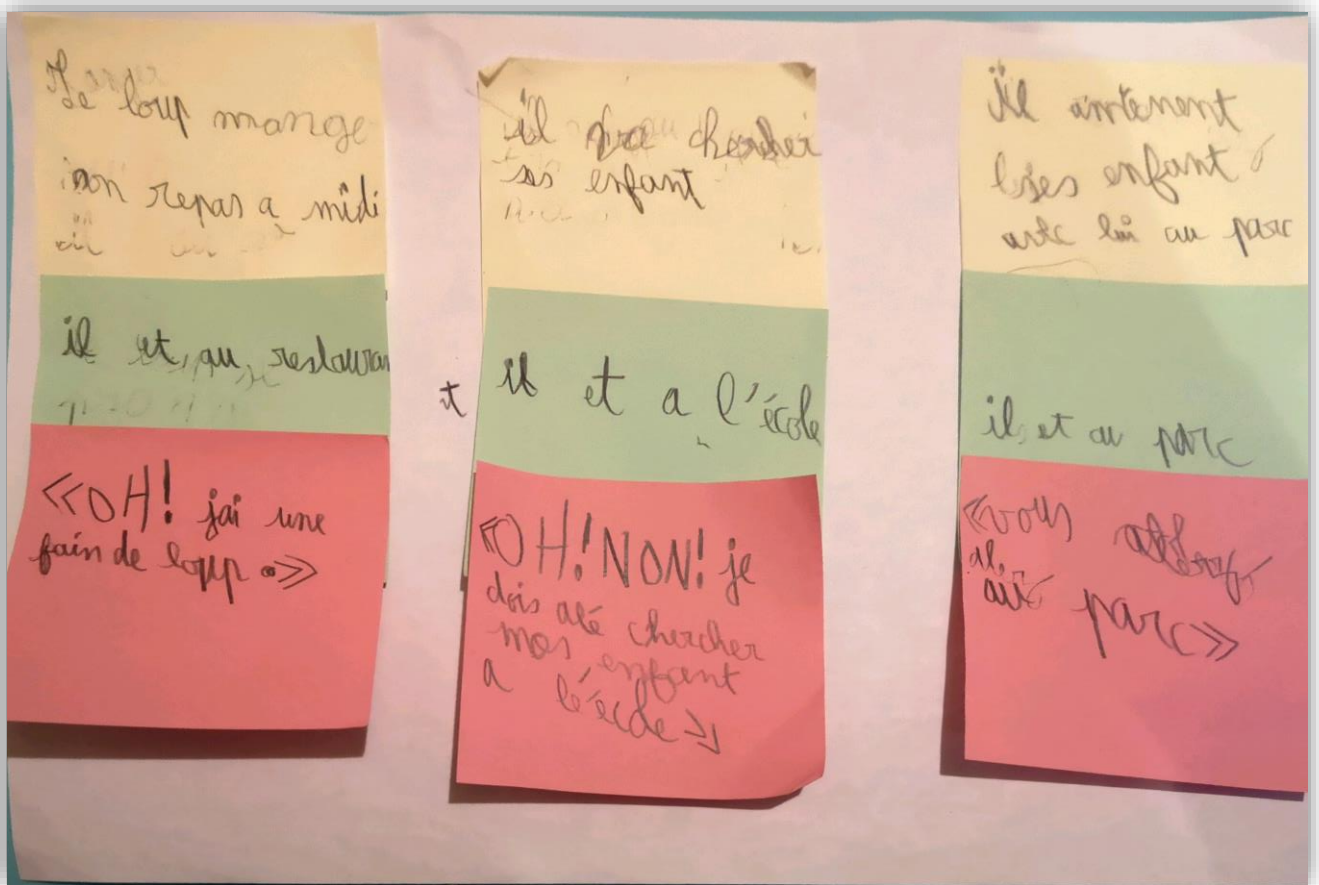 Le loup mange
son repas a midi
il et au restauran
t
«OH! jai une
fain de loup .»
il va chercher
ses enfant
il et a l'école
«OH! NON! je
dois alé chercher
mes enfant
a l'école»
Il
ses enfant
avec lui au parc
il et au parc
«vous
au parc»